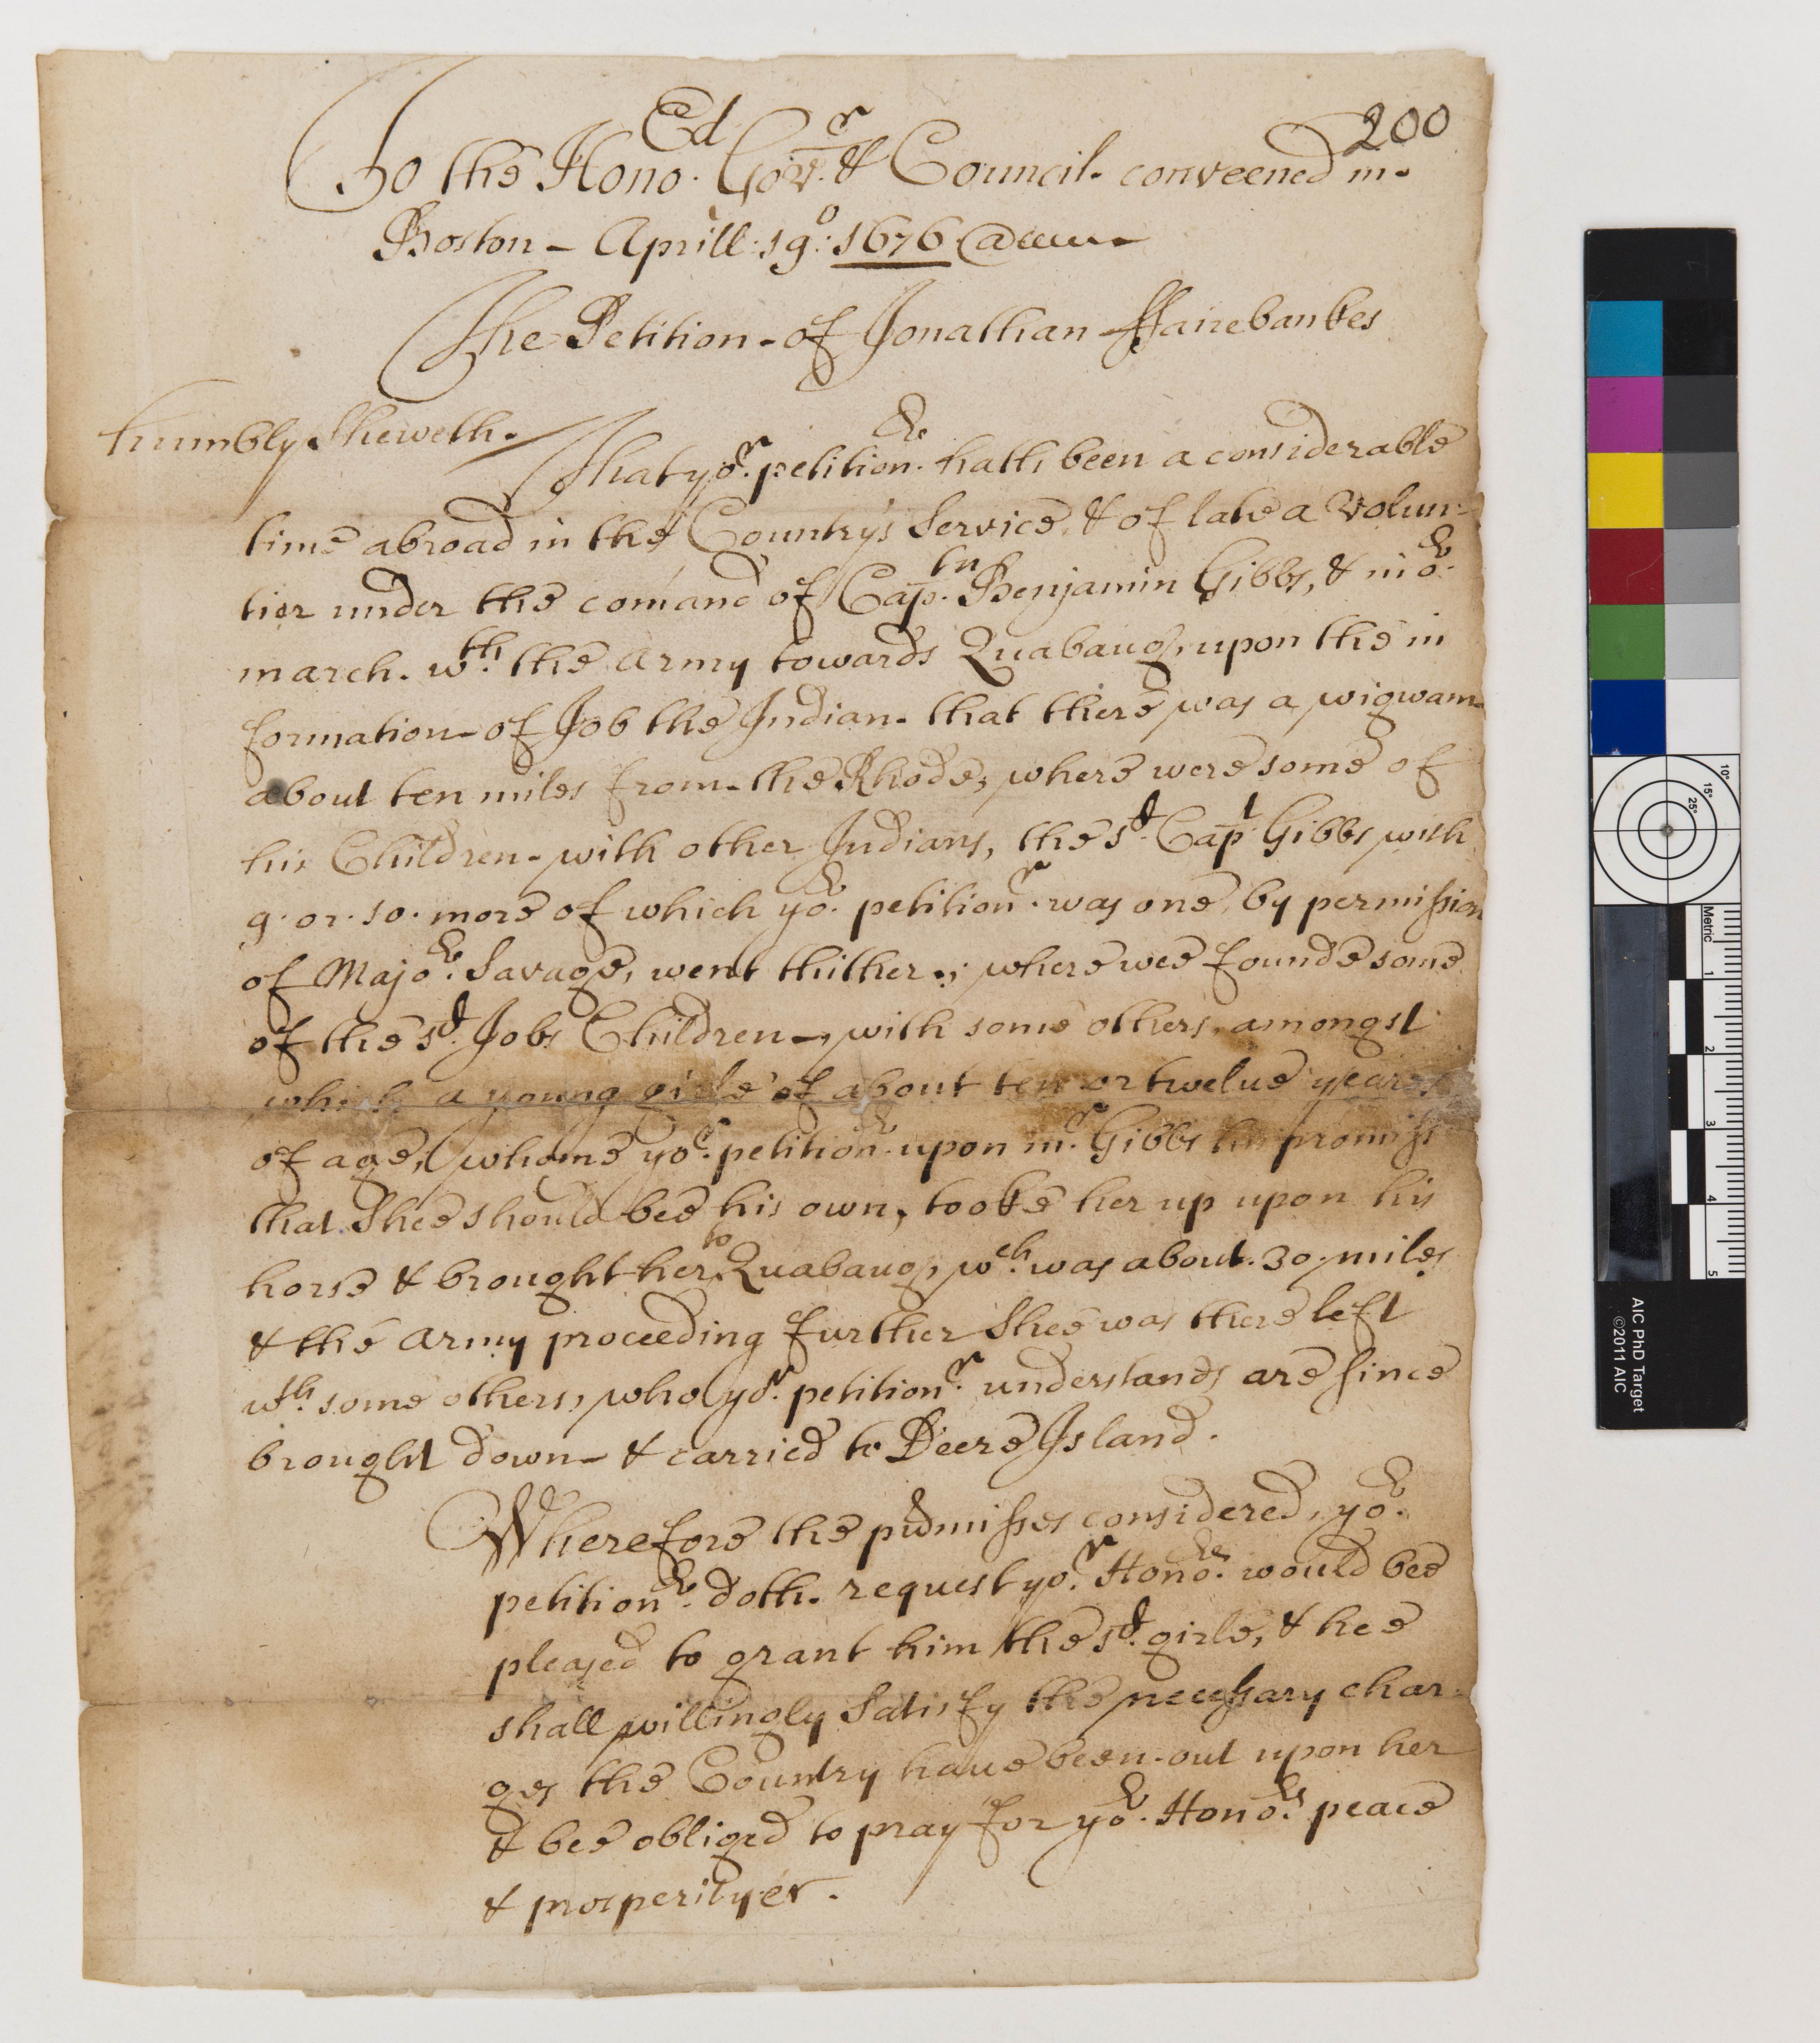 200
To the Hono.Ed Gov.r & Council. conveened in.
Boston - Aprill: 19.o: 1676
The Petition - of Jonathan ffairebankes
humbly Sheweth.
That yo.r petition.r hath been a considerable
time abroad in the Country's Service, & of late a Volun-
tier under the comand of Cap.tn Benjamin Gibbs, & in o.r
march. w.th the Army towards Quabaug, upon the in
formation - of Job the Indian - that there was a wigwam
about ten miles from - the Rhode, where were some of
his Children - with other Indians, the s.d Cap.t Gibbs with
9. or. 10. more of which yo.r petition.r was one, by permission
of Majo.r Savage, went thither; where wee founde some
of the s.d Jobs Children -, with some others, amongst
which a young girle of about ten or twelue yeares
of age, (whome yo.r petition.r upon m.r Gibbs his promiss
that Shee should bee his own, tooke her up upon his
horse & brought her to Quabaug, w.ch was about. 30 miles
& the Army proceeding further Shee was there left
w.th some others, who yo.r petition.r understands are since
brought down - & carried to Deere Island.
Wherefore the premisses considered, yo.r
petition.r doth. request yo.r Hono.rs would bee
pleased to grant him the s.d girle, & hee
shall willingly Satisfy the necessary char-
ges the Country haue been out upon her
& bee obliged to pray for yo.r Hono.rs peace
& prosperity er.
Metric
1
2
3
4
5
10°
15°
25°
AIC PhD Target
©2011 AIC